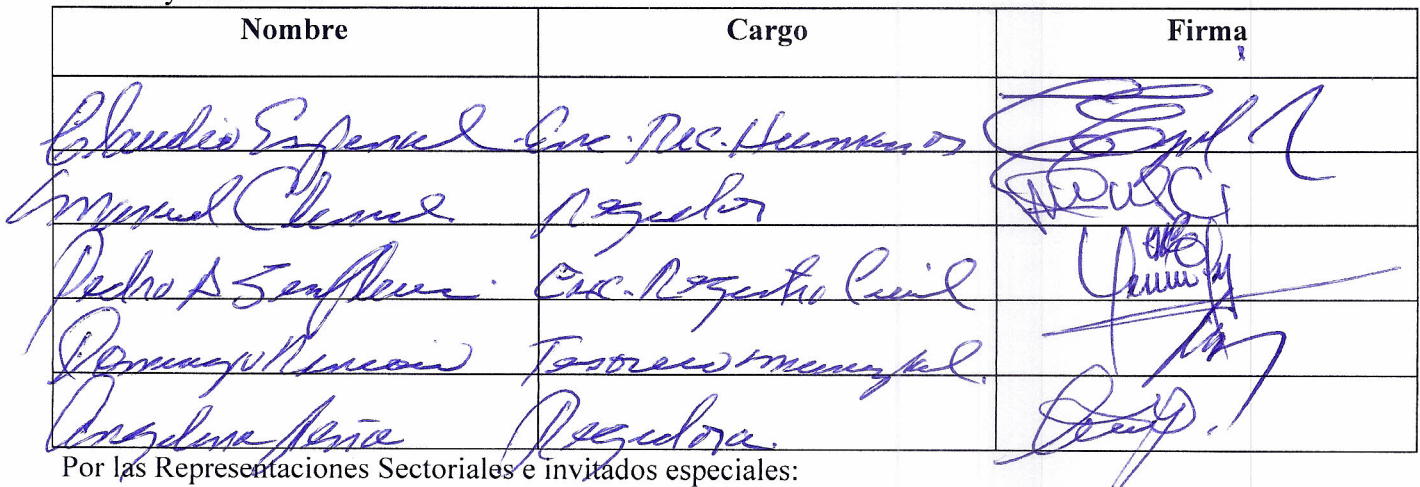 Nombre Cargo Firma
Claudio Espinal Enc. Rec. Humanos
Manuel Regidor
Pedro A Enc. Registro Civil
Domingo Tesorero municipal.
Angelina Peña Regidora.
Por las Representaciones Sectoriales e invitados especiales: